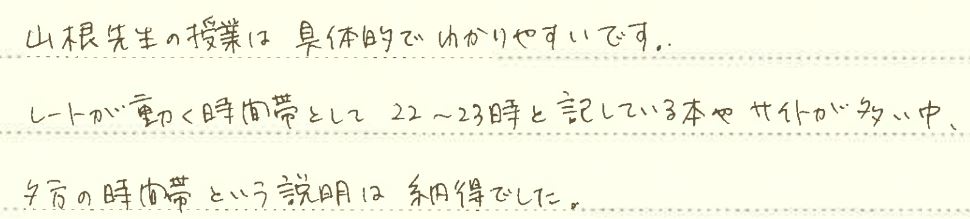 山根先生の授業は 具体的で わかりやすいです。
レートが動く時間帯として 22～23時と記している本や サイトが多い中、
夕方の時間帯という説明は 納得でした。